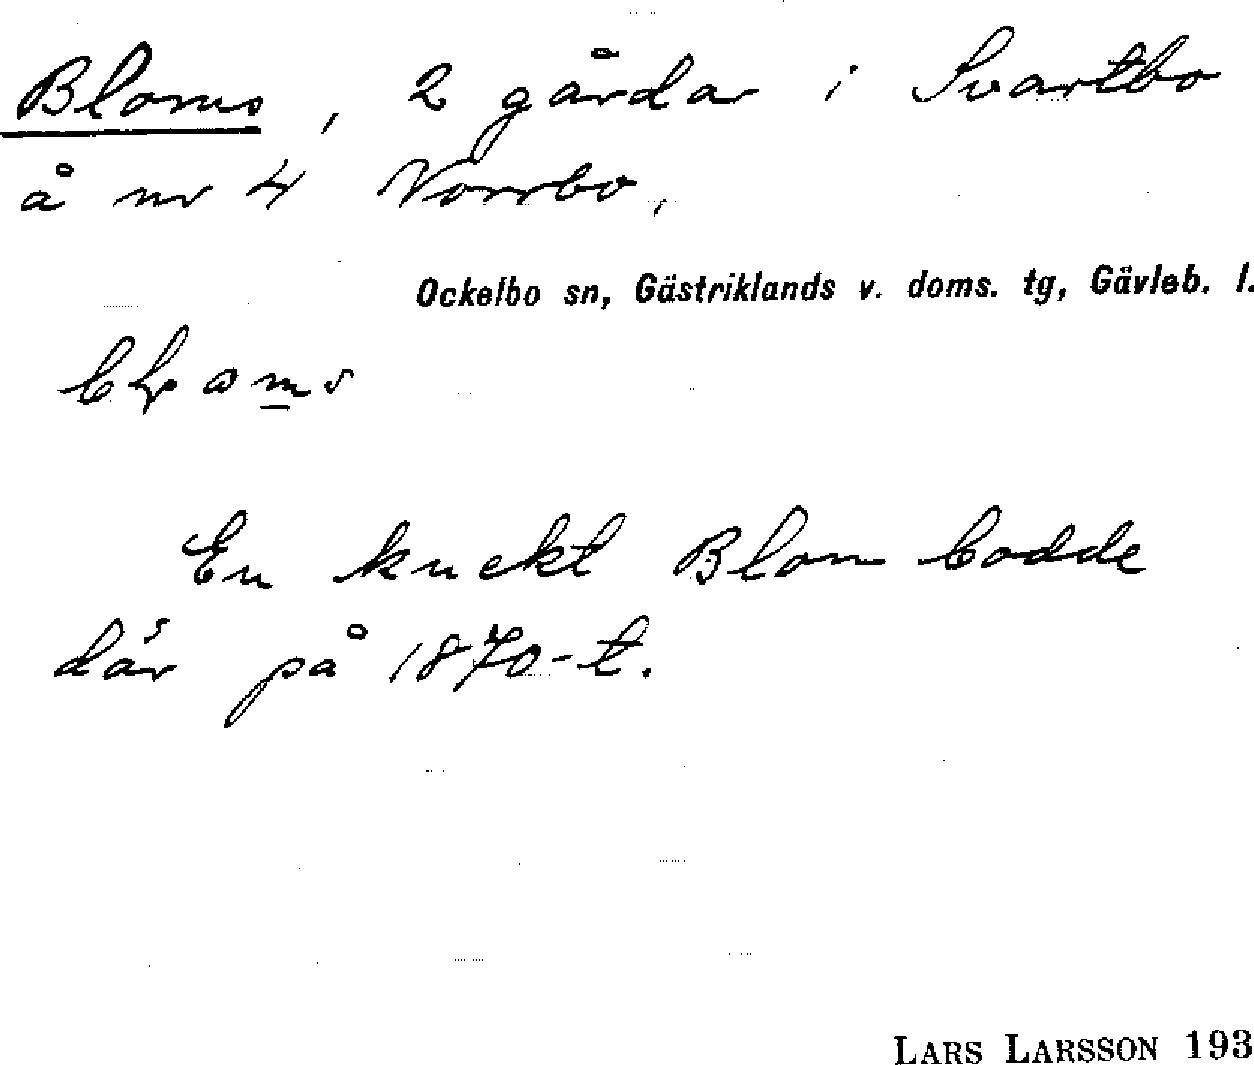 Bloms, 2 gårdar i Svartbo
å nr 4 Norrbo,
Ockelbo sn, Gästriklands v. doms. tg, Gävleb. l.
En knekt Blom bodde
där på 1870-t.
LARS LARSSON 193